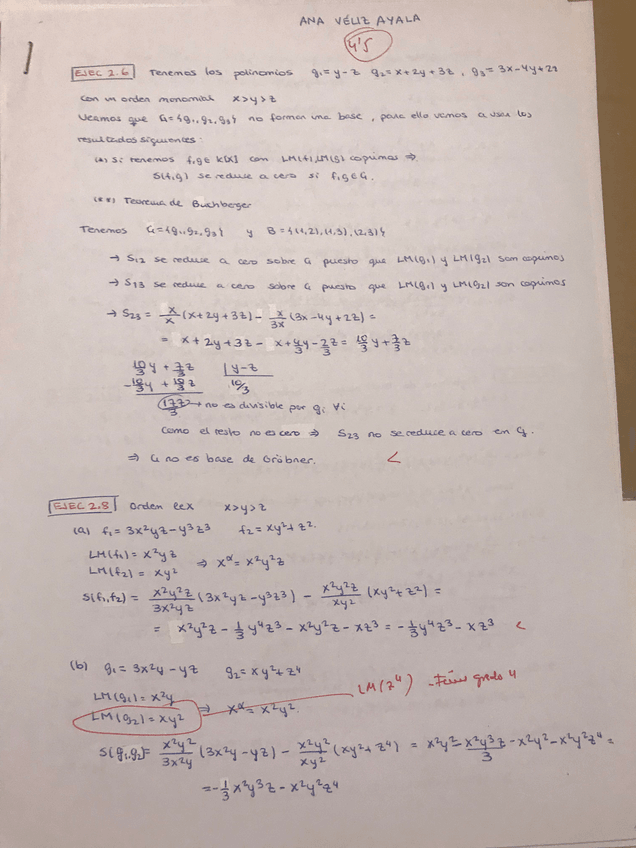 ANA VÉLIZ AYALA
4'5
EJEC 2.6 Tenemos los polinomios g₁= y-z g₂= x+2y+3z, g₃= 3x-4y+2z
con un orden monomial x>y>z
Veamos que G={g₁,g₂,g₃} no forman una base, para ello vamos a usar los
resultados siguientes:
(*) Si tenemos f,g∈K[X] con LM(f),LM(g) coprimos ⇒
S(f,g) se reduce a cero si f,g∈G.
(**) Teorema de Buchberger
Tenemos G={g₁,g₂,g₃} y B={(1,2),(1,3),(2,3)}
→ S₁₂ se reduce a cero sobre G puesto que LM(g₁) y LM(g₂) son coprimos
→ S₁₃ se reduce a cero sobre G puesto que LM(g₁) y LM(g₂) son coprimos
→ S₂₃ = x/x (x+2y+3z) - x/3x (3x-4y+2z) =
= x+2y+3z - x+4/3y-2/3z = 10/3 y + 7/3 z
10/3 y + 7/3 z | y-z
-10/3 y + 10/3 z 10/3
17/3 z → no es divisible por gᵢ ∀i
Como el resto no es cero ⇒ S₂₃ no se reduce a cero en G.
⇒ G no es base de Gröbner.
EJEC 2.8 Orden LEX x>y>z
(a) f₁= 3x²yz-y³z³ f₂= xy²+z².
LM(f₁)= x²yz
LM(f₂)= xy² ⇒ x^α = x²y²z
S(f₁,f₂)= x²y²z/3x²yz (3x²yz-y³z³) - x²y²z/xy² (xy²+z²) =
= x²y²z - 1/3 y⁴z³ - x²y²z - xz³ = -1/3 y⁴z³ - xz³
(b) g₁= 3x²y-yz g₂= xy²+z⁴
LM(z⁴) grado 4
LM(g₁)= x²y
LM(g₂)= xy² ⇒ x^α = x²y².
S(g₁,g₂)= x²y²/3x²y (3x²y-yz) - x²y²/xy² (xy²+z⁴) = x²y² - x²y³z/3 - x²y² - x²y²z⁴ =
= -1/3 x²y³z - x²y²z⁴